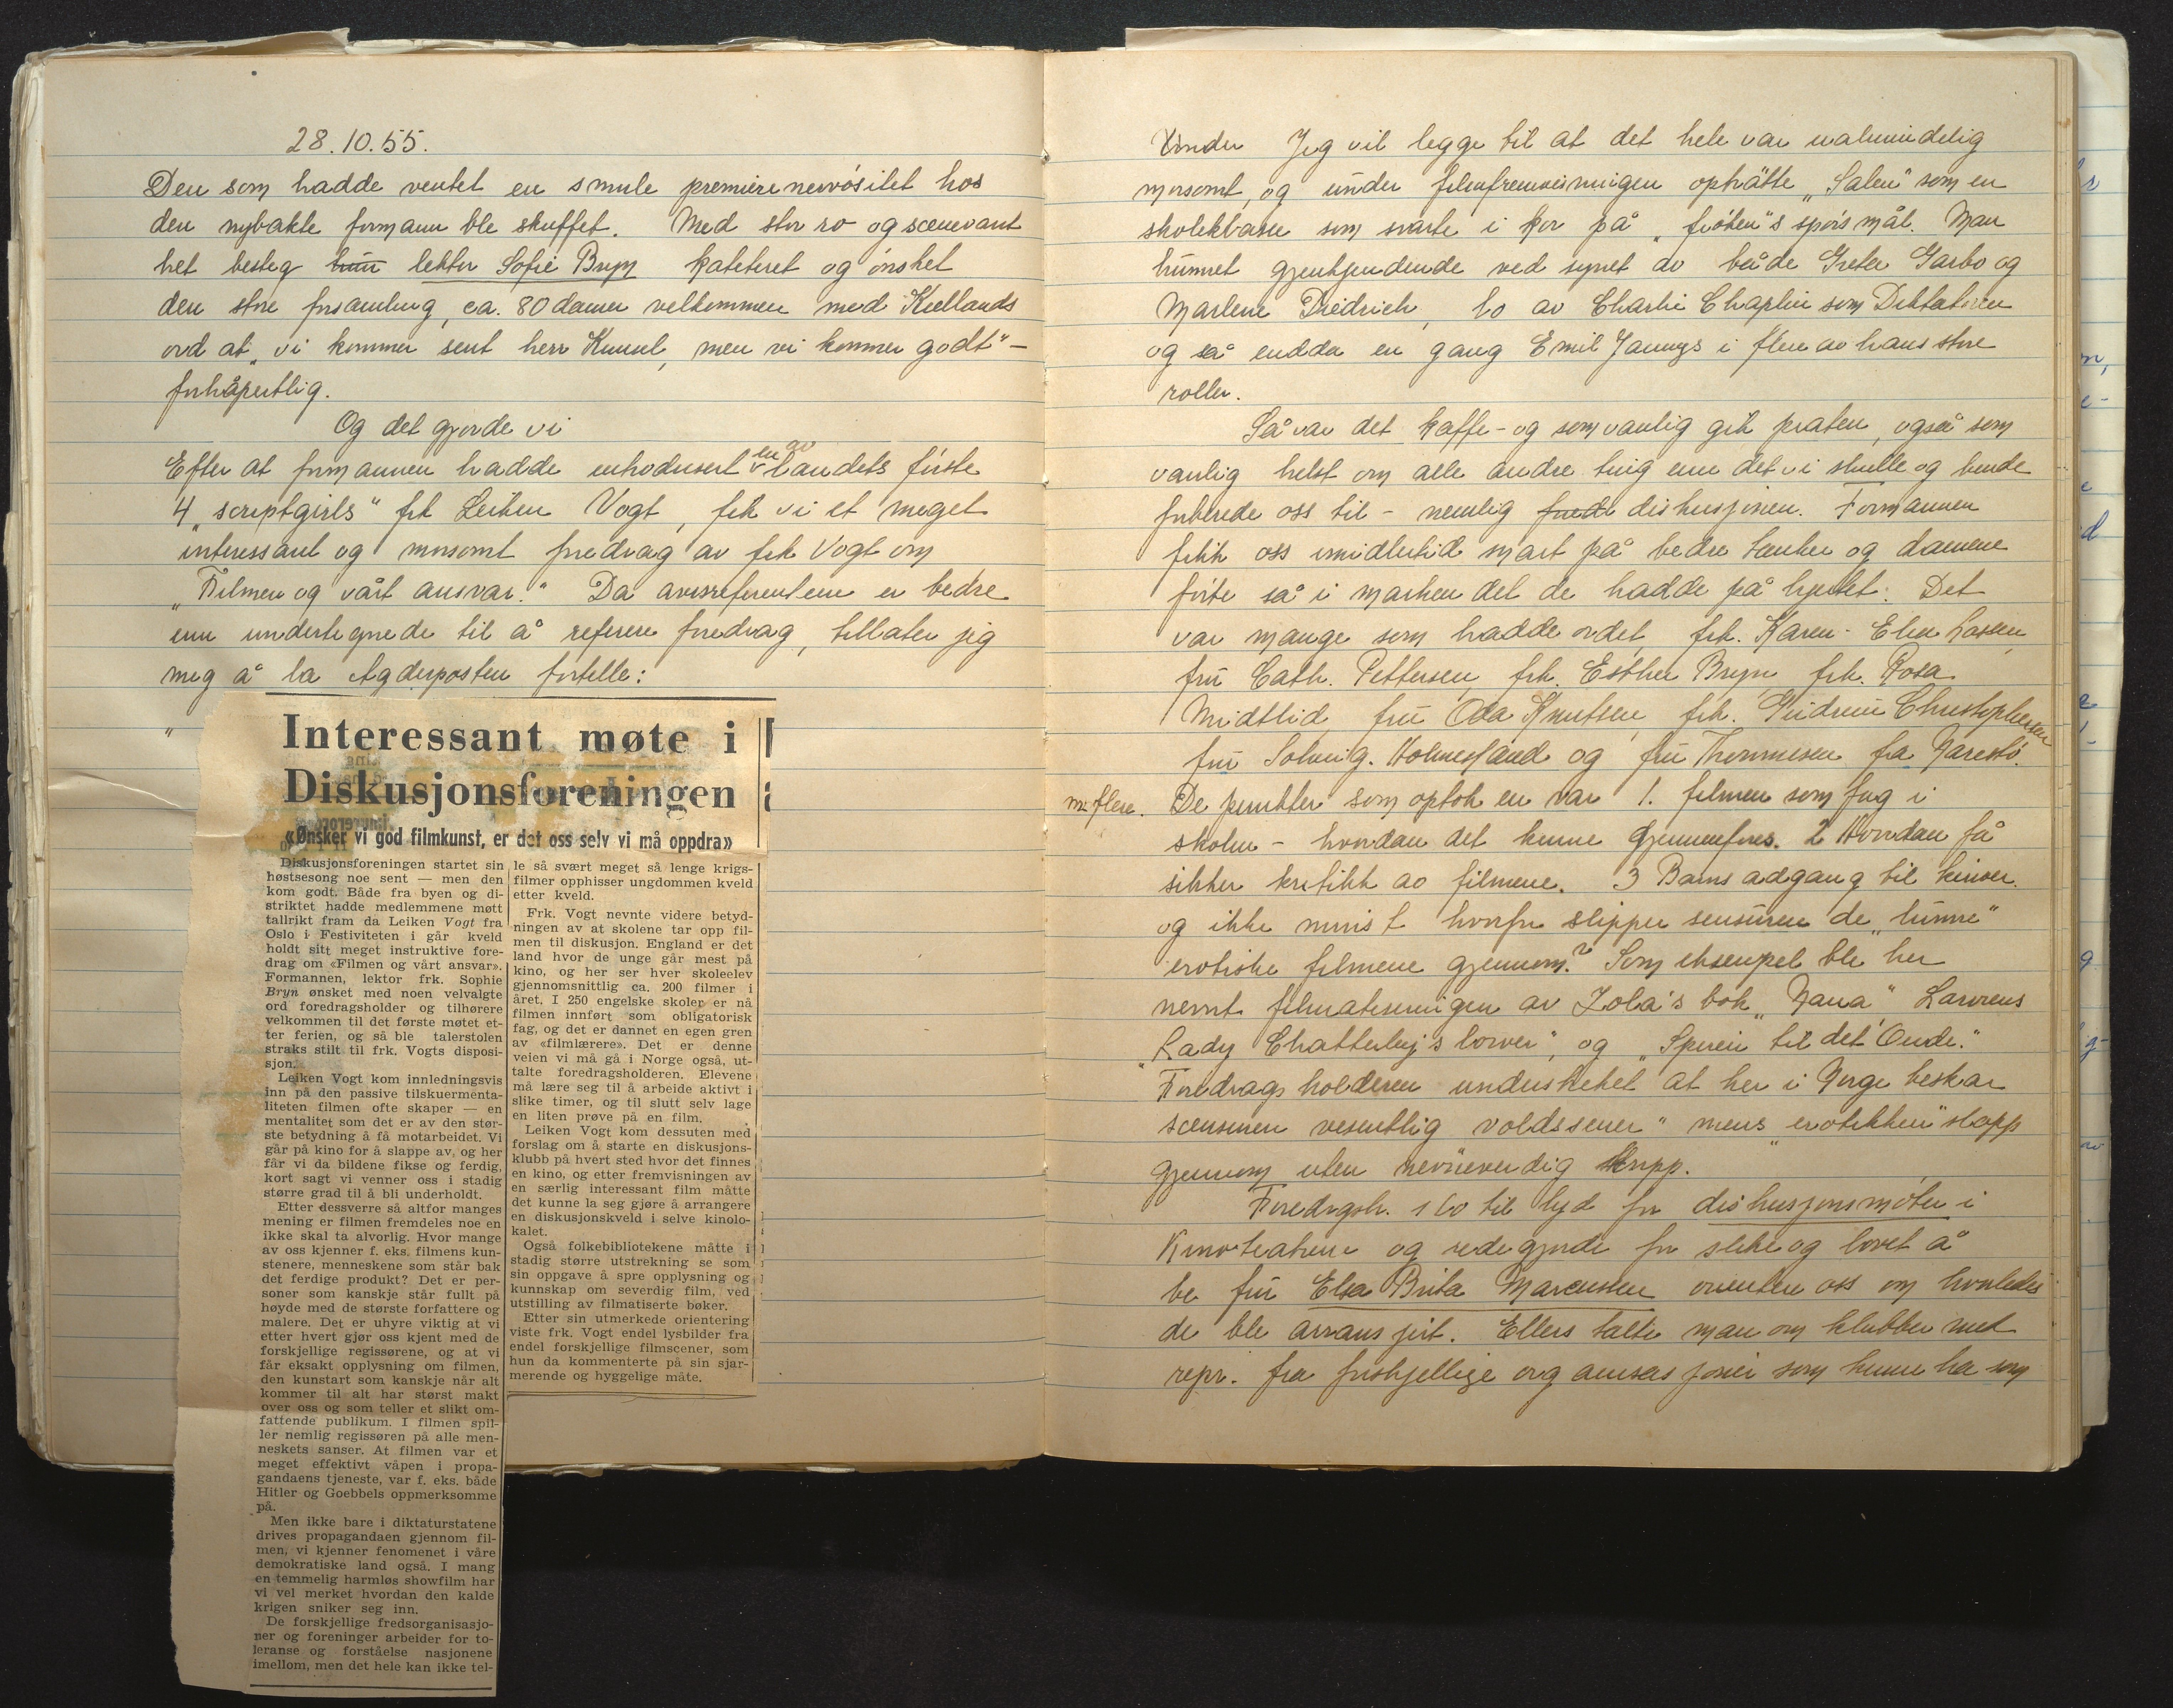 28.10.55.
Den som hadde ventet en smule premierenervøsitet hos
den nybakte formann ble skuffet. Med stor ro og scenevant
het besteg hun lektor Sofie Bryn kateteret og ønsket
den store forsamling, ca. 80 damer velkommen med Kiellands
ord at „vi kommer sent herr Konsul, men vi kommer godt" –
forhåpentlig.
Og det gjorde vi
Efter at formannen hadde introdusert en av landets første
4 „scriptgirls" frk Leiken Vogt, fik vi et meget
interessant og morsomt foredrag av frk Vogt om
„Filmen og vårt ansvar." Da avisreferentene er bedre
enn undertegnede til å referere foredrag, tillater jeg
meg å la Agderposten fortelle:
"
Interessant møte i
Diskusjonsforeningen
«Ønsker vi god filmkunst, er det oss selv vi må oppdra»
Diskusjonsforeningen startet sin
høstsesong noe sent — men den
kom godt. Både fra byen og di-
striktet hadde medlemmene møtt
tallrikt fram da Leiken Vogt fra
Oslo i Festiviteten i går kveld
holdt sitt meget instruktive fore-
drag om «Filmen og vårt ansvar».
Formannen, lektor frk. Sophie
Bryn ønsket med noen velvalgte
ord foredragsholder og tilhørere
velkommen til det første møtet et-
ter ferien, og så ble talerstolen
straks stilt til frk. Vogts disposi-
sjon.
Leiken Vogt kom innledningsvis
inn på den passive tilskuermenta-
liteten filmen ofte skaper — en
mentalitet som det er av den stør-
ste betydning å få motarbeidet. Vi
går på kino for å slappe av, og her
får vi da bildene fikse og ferdig,
kort sagt vi venner oss i stadig
større grad til å bli underholdt.
Etter dessverre så altfor manges
mening er filmen fremdeles noe en
ikke skal ta alvorlig. Hvor mange
av oss kjenner f. eks. filmens kun-
stenere, menneskene som står bak
det ferdige produkt? Det er per-
soner som kanskje står fullt på
høyde med de største forfattere og
malere. Det er uhyre viktig at vi
etter hvert gjør oss kjent med de
forskjellige regissørene, og at vi
får eksakt opplysning om filmen,
den kunstart som kanskje når alt
kommer til alt har størst makt
over oss og som teller et slikt om-
fattende publikum. I filmen spil-
ler nemlig regissøren på alle men-
neskets sanser. At filmen var et
meget effektivt våpen i propa-
gandaens tjeneste, var f. eks. både
Hitler og Goebbels oppmerksomme
på.
Men ikke bare i diktaturstatene
drives propagandaen gjennom fil-
men, vi kjenner fenomenet i våre
demokratiske land også. I mang
en temmelig harmløs showfilm har
vi vel merket hvordan den kalde
krigen sniker seg inn.
De forskjellige fredsorganisasjo-
ner og foreninger arbeider for to-
leranse og forståelse nasjonene
imellom, men det hele kan ikke tel-
le så svært meget så lenge krigs-
filmer opphisser ungdommen kveld
etter kveld.
Frk. Vogt nevnte videre betyd-
ningen av at skolene tar opp fil-
men til diskusjon. England er det
land hvor de unge går mest på
kino, og her ser hver skoleelev
gjennomsnittlig ca. 200 filmer i
året. I 250 engelske skoler er nå
filmen innført som obligatorisk
fag, og det er dannet en egen gren
av «filmlærere». Det er denne
veien vi må gå i Norge også, ut-
talte foredragsholderen. Elevene
må lære seg til å arbeide aktivt i
slike timer, og til slutt selv lage
en liten prøve på en film.
Leiken Vogt kom dessuten med
forslag om å starte en diskusjons-
klubb på hvert sted hvor det finnes
en kino, og etter fremvisningen av
en særlig interessant film måtte
det kunne la seg gjøre å arrangere
en diskusjonskveld i selve kinolo-
kalet.
Også folkebibliotekene måtte i
stadig større utstrekning se som
sin oppgave å spre opplysning og
kunnskap om severdig film, ved
utstilling av filmatiserte bøker.
Etter sin utmerkede orientering
viste frk. Vogt endel lysbilder fra
endel forskjellige filmscener, som
hun da kommenterte på sin sjar-
merende og hyggelige måte.
Under Jeg vil legge til at det hele var ualmindelig
morsomt, og under filmfremvisningen optrådte „Salen" som en
skoleklasse som svarte i kor på „frøken"s spørsmål. Man
humret gjenkjendende ved synet av både Greta Garbo og
Marlene Diedrich, lo av Charlie Chaplin som Diktatoren
og så endda en gang Emil Jannings i flere av hans store
roller.
Så var det kaffe – og som vanlig gik praten, også som
vanlig helst om alle andre ting enn det vi skulle og burde
forberede oss til – nemlig diskusjonen. Formannen
fikk oss imidlertid snart på bedre tanker og damene
førte så i marken det de hadde på hjertet. Det
var mange som hadde ordet, frk. Karen-Elise
fru Cath. Pettersen, frk. Esther Bryn frk. Rosa
Midtlid fru Oda Knutsen, frk. Gudrun Christophersen
fru Solveig Holmesland og fru Thommesen fra Narestø.
m. flere. De punkter som optok en var 1. filmen som fag i
skolen – hvordan det kunne gjennemføres. 2 Hvordan få
sikker kritikk av filmene. 3 Barns adgang til kinoer.
og ikke minst hvorfor slipper sensuren de „lumre"
erotiske filmene gjennom? Som eksempel ble her
nevnt filmatiseringen av Zola's bok „Nana" Lawrens
„Lady Chatterley's lower", og „Spiren til det Onde."
Foredragsholderen understreket at her i Norge beskar
scensuren vesentlig voldsscener" mens „erotikken" slapp
gjennom uten nevneverdig klipp.
Foredrgsh. slo til lyd for diskusjonsmøter i
Kinoteatrene og redegjorde for slike og lovet å
be fru Elsa Brita Marcussen orientere oss om hvorledes
de ble arransjert. Ellers talte man om klubber med
repr. fra forskjellige organisasjoner som kunne ha som